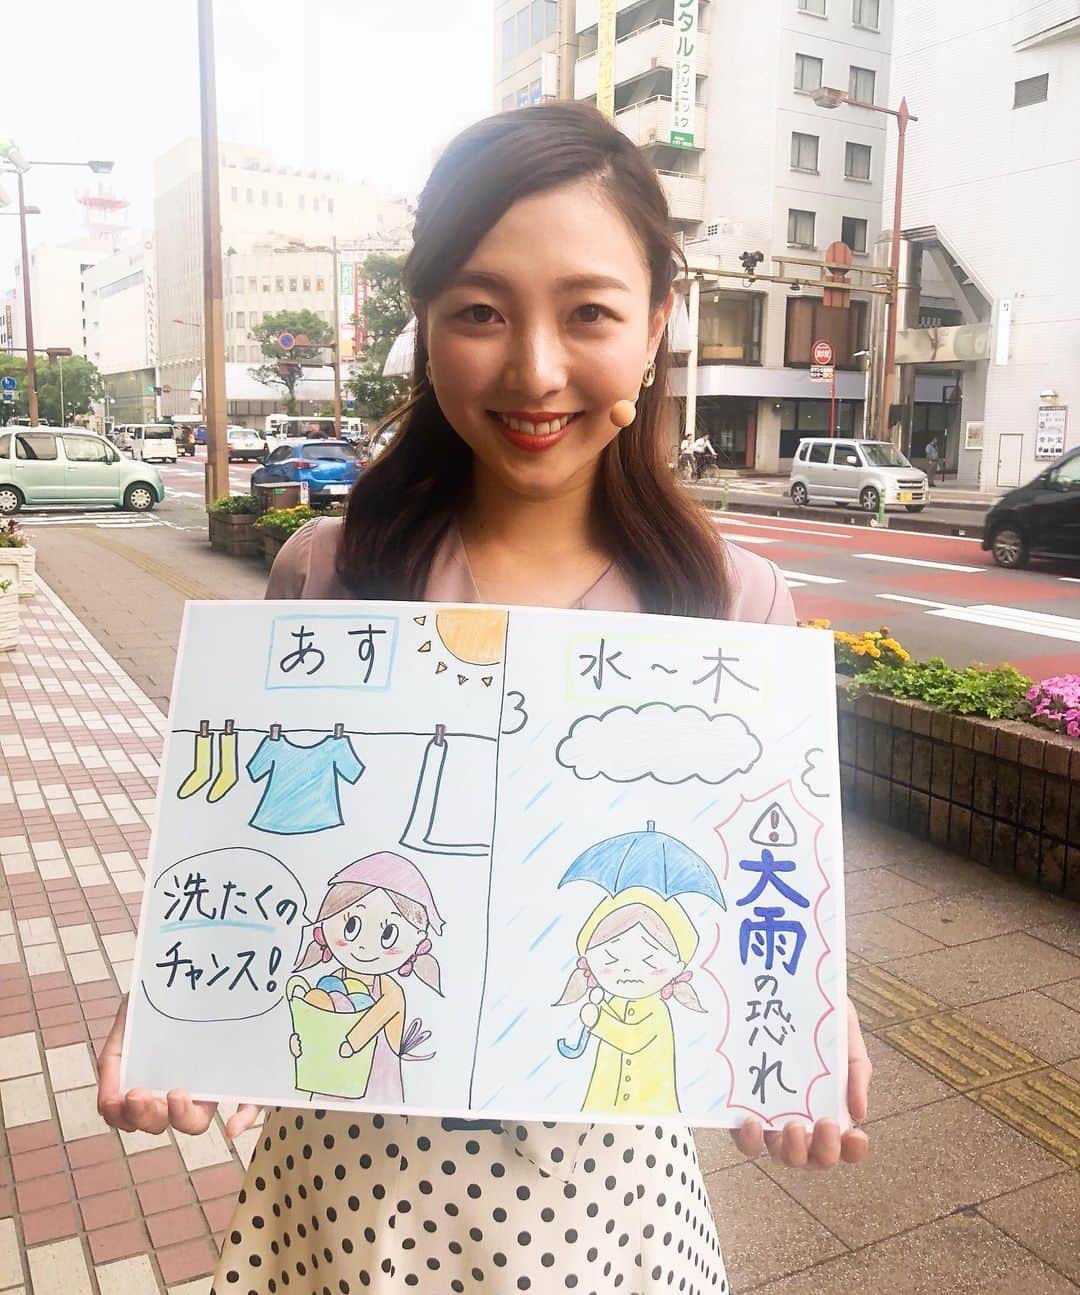 あす
水～木
洗たくの
チャンス！
大雨の恐れ
ンタルクリニック